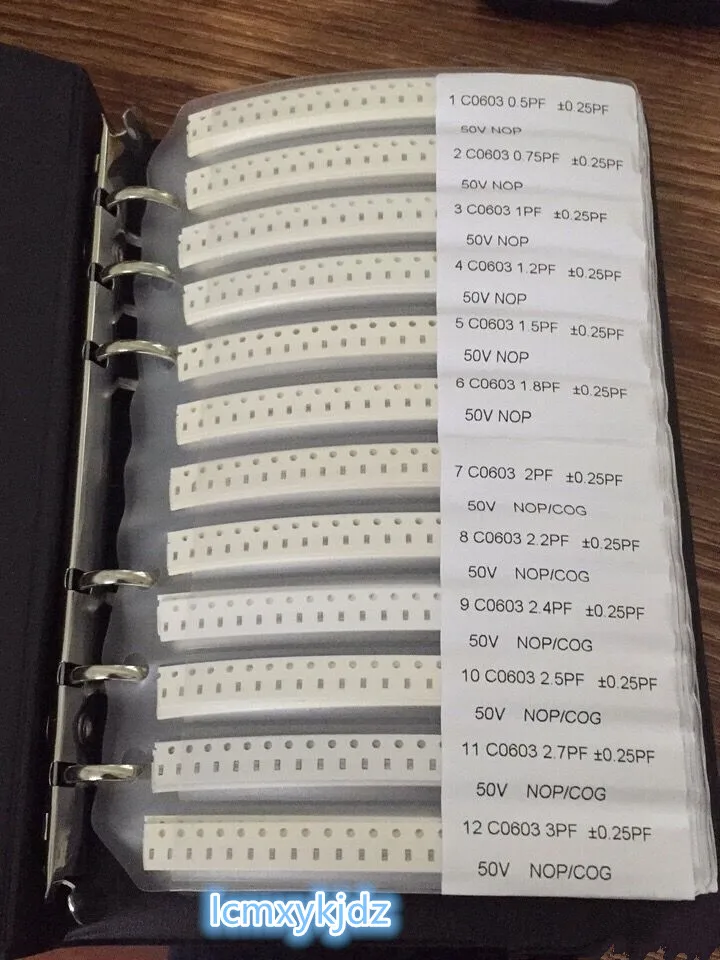 1 C0603 0.5PF ±0.25PF
50V NOP
2 C0603 0.75PF ±0.25PF
50V NOP
3 C0603 1PF ±0.25PF
50V NOP
4 C0603 1.2PF ±0.25PF
50V NOP
5 C0603 1.5PF ±0.25PF
50V NOP
6 C0603 1.8PF ±0.25PF
50V NOP
7 C0603 2PF ±0.25PF
50V NOP/COG
8 C0603 2.2PF ±0.25PF
50V NOP/COG
9 C0603 2.4PF ±0.25PF
50V NOP/COG
10 C0603 2.5PF ±0.25PF
50V NOP/COG
11 C0603 2.7PF ±0.25PF
50V NOP/COG
12 C0603 3PF ±0.25PF
50V NOP/COG
lcmxykjdz